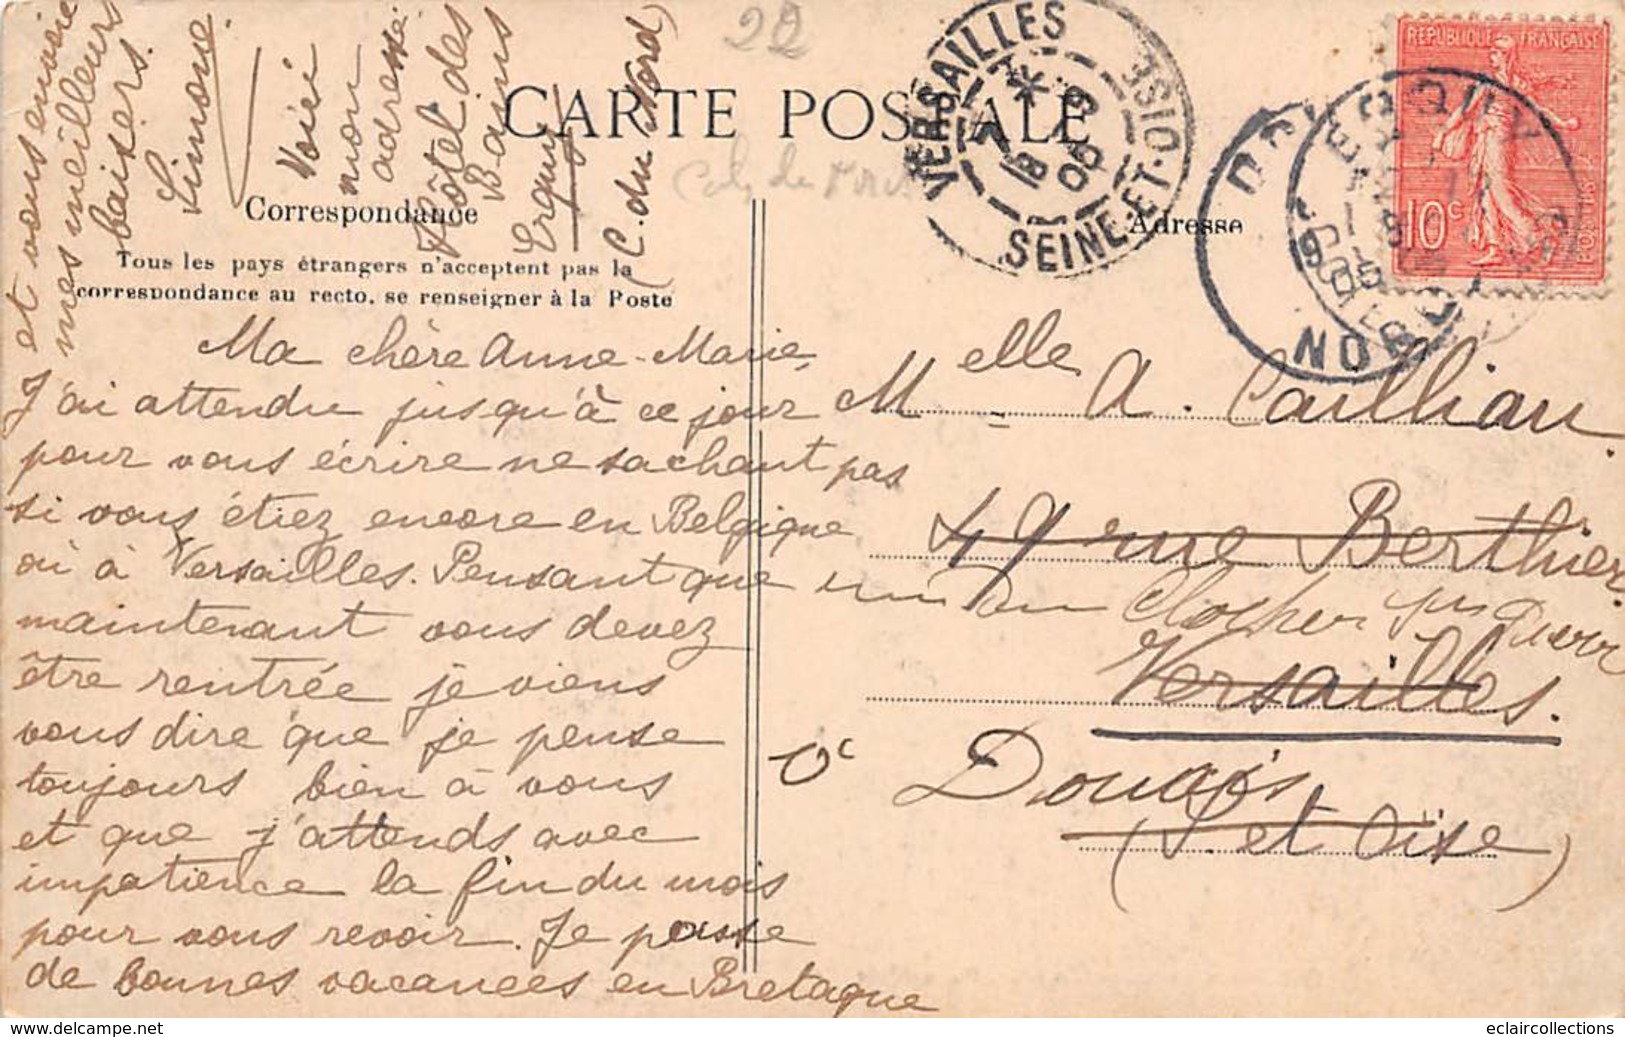 CARTE POSTALE
Correspondance
Adresse
Tous les pays étrangers n'acceptent pas la
correspondance au recto. se renseigner à la Poste
22
RÉPUBLIQUE FRANÇAISE
10c
POSTES
VERSAILLES
SEINE-ET-OISE
18
05
ERQUY
NORD
Ma chère Anne-Marie,
J'ai attendu jusqu'à ce jour
pour vous écrire ne sachant pas
si vous étiez encore en Belgique
où à Versailles. Pensant que
maintenant vous devez
être rentrée je viens
vous dire que je pense
toujours bien à vous
et que j'attends avec
impatience la fin du mois
pour vous revoir. Je passe
de bonnes vacances en Bretagne
et vous envoie
mes meilleurs
baisers.
Simone.
Voici
mon
adresse:
Hôtel des
Bains
Erquy
(C. du Nord)
Melle A. Caillian.
49 rue Berthier.
Clocher
Versailles.
Douais
(S. et Oise)
eclaircollections